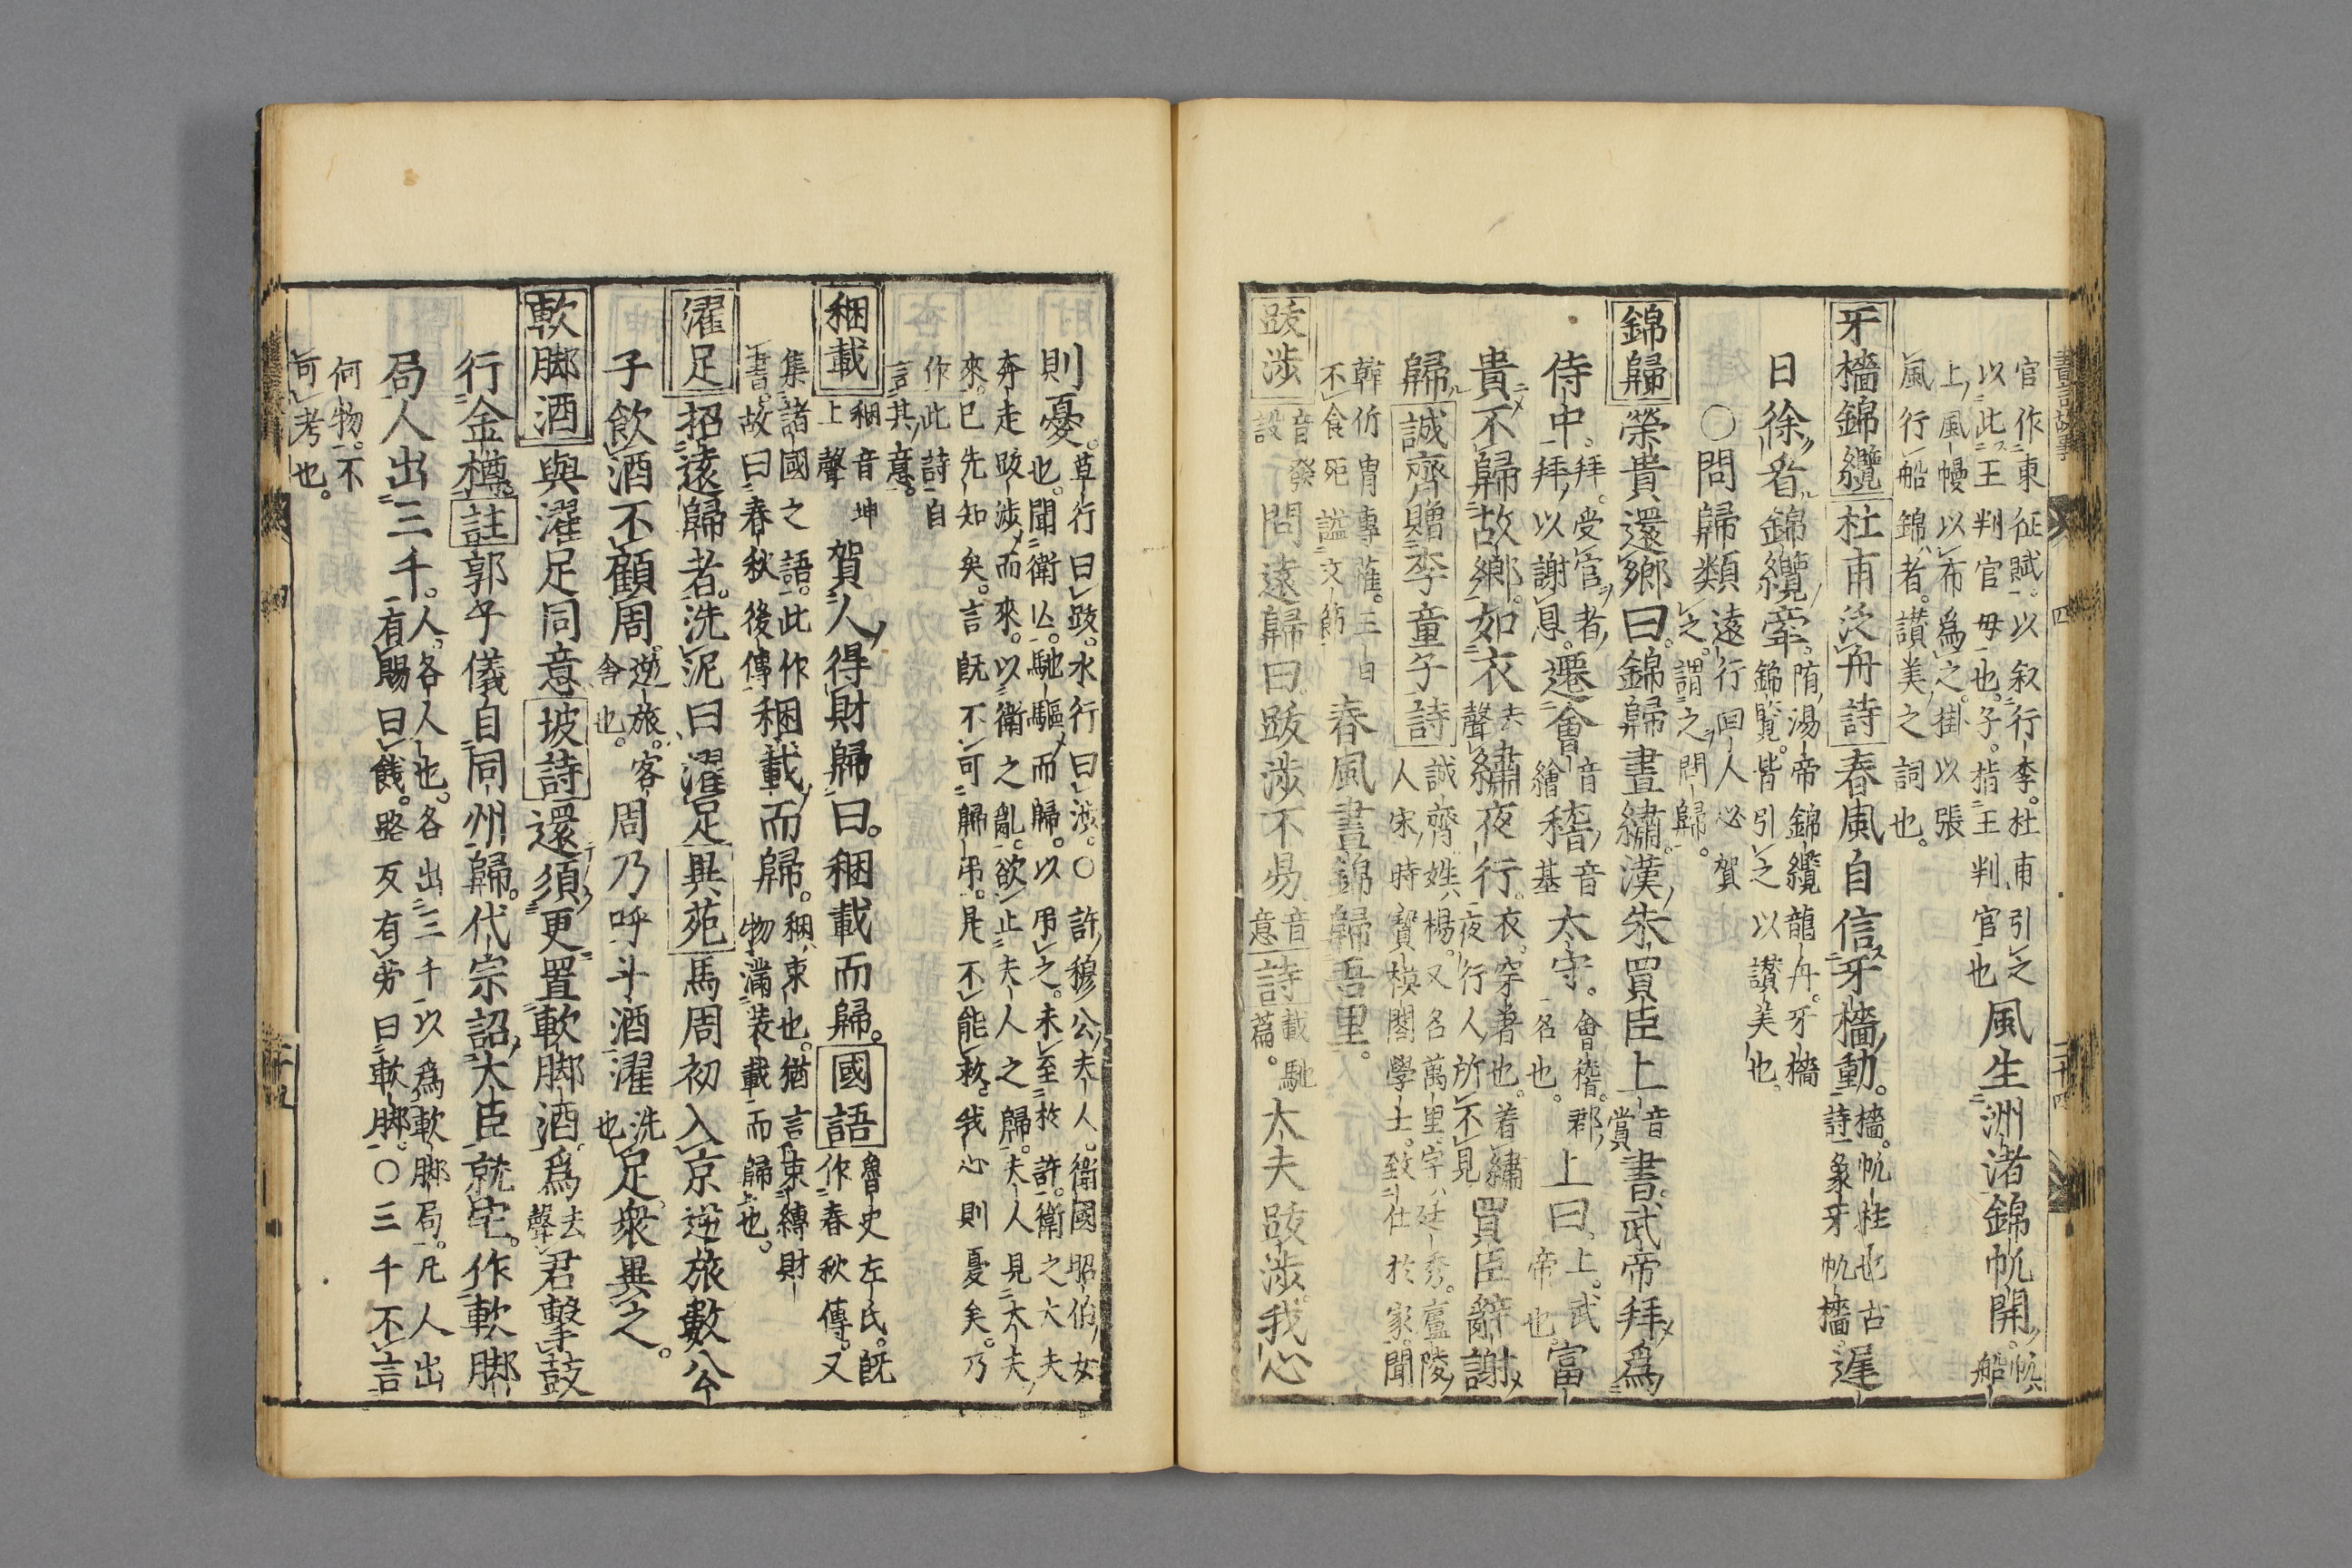 官作東征賦以叙行李杜甫引之
以此王判官毋也子指王判官也
風生洲渚錦帆開帆船
上風幔以布爲之掛以張
風行船錦者讃美之詞也
牙檣錦纜杜甫泛舟詩春風自信牙檣動檣帆柱也古
詩象牙帆檣遲
日徐看錦纜牽隋湯帝錦纜龍舟牙檣
錦覽皆引之以讃美也
○問歸類遠行回人必賀
之謂之問歸
錦歸榮貴還鄉曰錦歸晝繡漢朱買臣上音賞書武帝拜爲
侍中拜受官者
拜以謝恩遷會音繪稽音基太守會稽郡
名也上曰上武帝也富
貴不歸故鄉如衣去聲繡夜行衣穿著也着繡
夜行人所不見買臣辭謝
歸誠齊贈李童子詩誠齊姓楊又名萬里字廷秀廬陵
人宋時寳模閣學士致仕於家聞
韓侂胄專權三日
不食死謚文節春風晝錦歸吾里
跋涉音發設問遠歸曰跋涉不易音意詩載馳篇大夫跋涉我心
則憂草行曰跋水行曰涉○許穆公夫人衛國昭伯女
也聞衛亾馳驅而歸以吊之未至於許衛之大夫
奔走跋涉而來以衛之亂欲止夫人之歸夫人見大夫
來已先知矣言既不可歸吊凡不能救我心則憂矣乃
作此詩自
言其意
稛載稛音坤
上聲賀人得財歸曰稛載而歸國語魯史左氏既
作春秋傳又
集諸國之語此作
書故曰春秋後傳稛載而歸稛束也猶言束縛財
物滿裝載而歸也
濯足招遠歸者洗泥曰濯足異苑馬周初入京逆旅數公
子飲酒不顧周逆旅客
舍也周乃呼斗酒濯洗也足衆異之
軟脚酒與濯足同意坡詩還須更置軟脚酒爲去聲君擊鼓
行金樽註郭子儀自同州歸代宗詔大臣就宅作軟脚
局人出三千人各人也各出三千以爲軟脚局凡人出
有賜曰餞路反有勞曰軟脚○三千不言
何物不
可考也